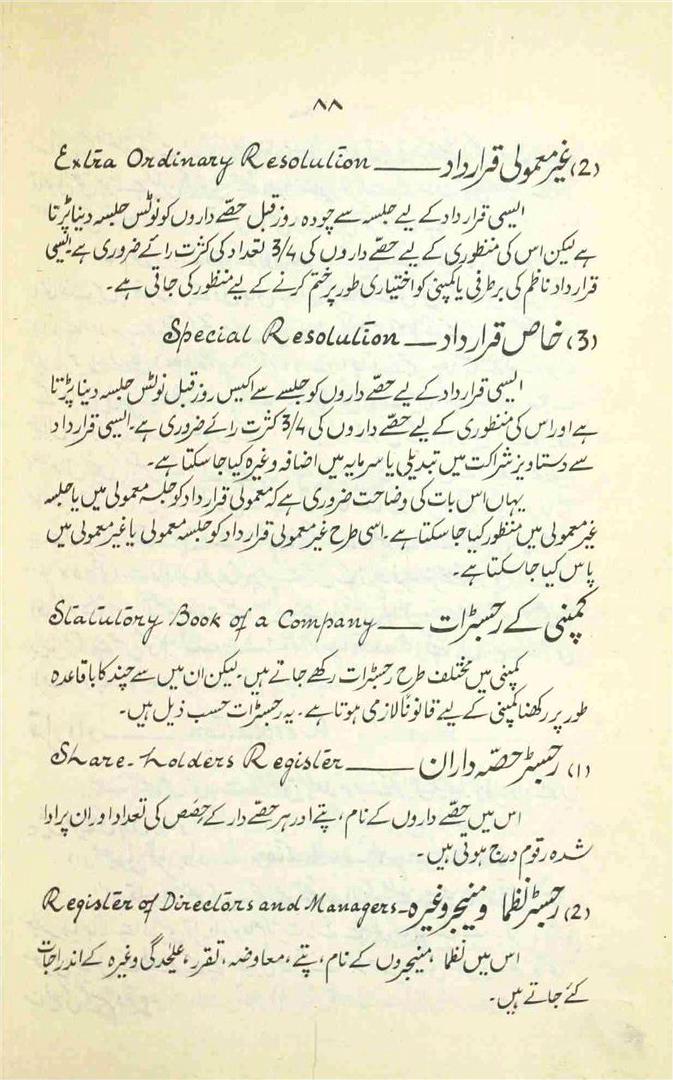 ۸۸
(2) غیر معمولی قرارداد ——— Extra Ordinary Resolution
ایسی قرارداد کے لیے جلسہ سے چودہ روز قبل حصّے داروں کو نوٹس جلسہ دینا پڑتا
ہے لیکن اس کی منظوری کے لیے حصّے داروں کی 3/4 تعداد کی کثرت رائے ضروری ہے۔ ایسی
قرارداد ناظم کی برطرفی یا کمپنی کو اختیاری طور پر ختم کرنے کے لیے منظور کی جاتی ہے۔
(3) خاص قرارداد —— Special Resolution
ایسی قرارداد کے لیے حصّے داروں کو جلسے سے اکیس روز قبل نوٹس جلسہ دینا پڑتا
ہے اور اس کی منظوری کے لیے حصّے داروں کی 3/4 کثرت رائے ضروری ہے۔ ایسی قرارداد
سے دستاویز شراکت میں تبدیلی یا سرمایہ میں اضافہ وغیرہ کیا جا سکتا ہے۔
یہاں اس بات کی وضاحت ضروری ہے کہ معمولی قرارداد کو جلسہ معمولی میں یا جلسہ
غیر معمولی میں منظور کیا جا سکتا ہے۔ اسی طرح غیر معمولی قرارداد کو جلسہ معمولی یا غیر معمولی میں
پاس کیا جا سکتا ہے۔
کمپنی کے رجسٹرات —— Statutory Book of a Company
کمپنی میں مختلف طرح رجسٹرات رکھے جاتے ہیں۔ لیکن ان میں سے چند کا باقاعدہ
طور پر رکھنا کمپنی کے لیے قانوناً لازمی ہوتا ہے۔ یہ رجسٹرات حسب ذیل ہیں۔
(1) رجسٹر حصّہ داران ——— Share-holders Register
اس میں حصّے داروں کے نام، پتے اور ہر حصّے دار کے حِصَص کی تعداد اور ان پر ادا
شدہ رقوم درج ہوتی ہیں۔
(2) رجسٹر نظما و منیجر وغیرہ - Register of Directors and Managers
اس میں نظما، منیجروں کے نام، پتے، معاوضہ، تقرر، علیٰحدگی وغیرہ کے اندراجات
کئے جاتے ہیں۔